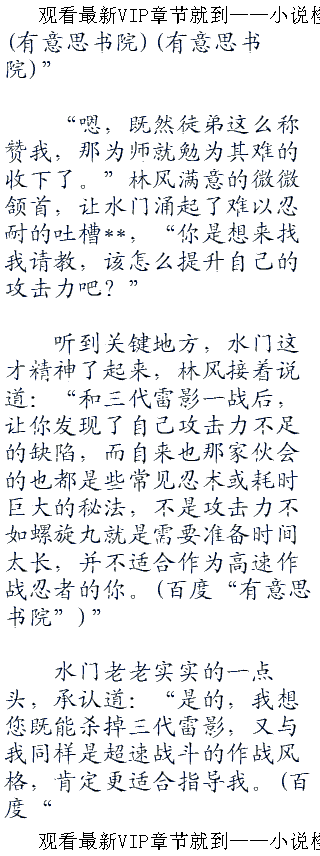 观看最新VIP章节就到——小说楼
(有意思书院)(有意思书
院)”
“嗯，既然徒弟这么称
赞我，那为师就勉为其难的
收下了。”林风满意的微微
颔首，让水门涌起了难以忍
耐的吐槽**，“你是想来找
我请教，该怎么提升自己的
攻击力吧？”
听到关键地方，水门这
才精神了起来，林风接着说
道：“和三代雷影一战后，
让你发现了自己攻击力不足
的缺陷，而自来也那家伙会
的也都是些常见忍术或耗时
巨大的秘法，不是攻击力不
如螺旋九就是需要准备时间
太长，并不适合作为高速作
战忍者的你。(百度“有意思
书院”)”
水门老老实实的一点
头，承认道：“是的，我想
您既能杀掉三代雷影，又与
我同样是超速战斗的作战风
格，肯定更适合指导我。(百
度“
观看最新VIP章节就到——小说